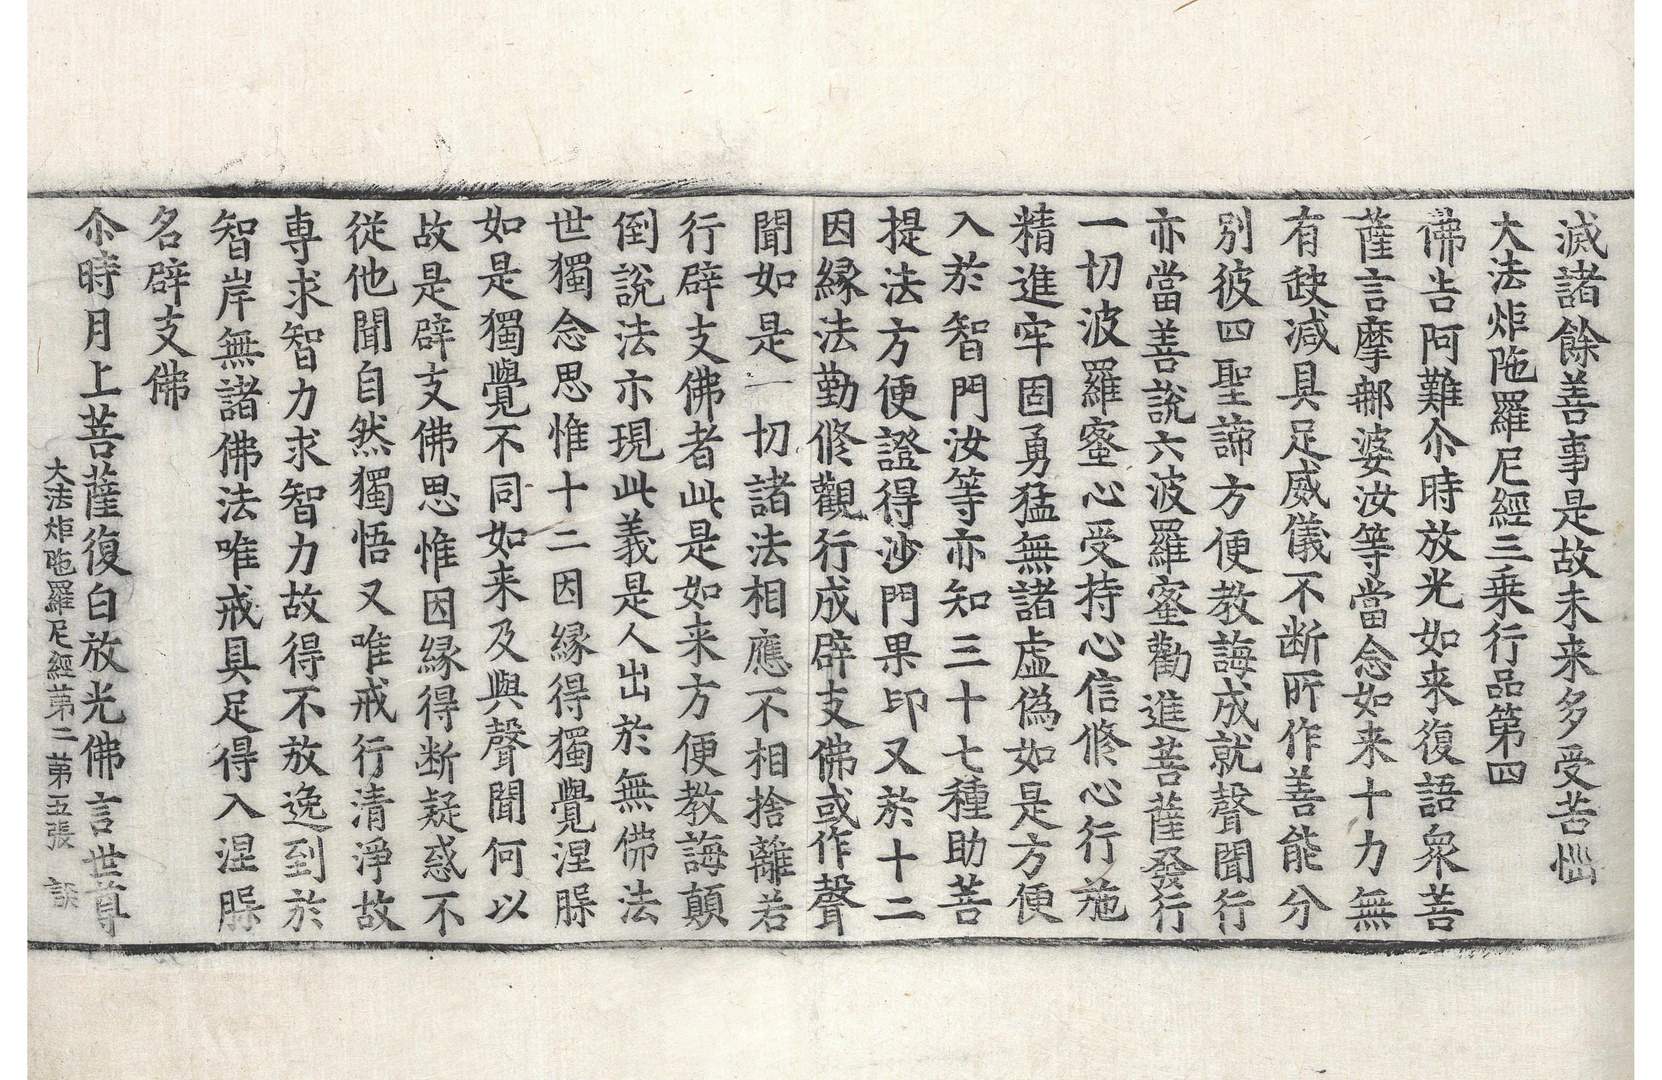 滅諸餘善事是故未来多受苦惱
大法炬陁羅尼經三乗行品第四
佛告阿難尒時放光如来復語衆菩
薩言摩那婆汝等當念如来十力無
有缺减具足威儀不断所作善能分
別彼四聖諦方便教誨成就聲聞行
亦當善說六波羅蜜勸進菩薩發行
一切波羅蜜心受持心信修心行施
精進牢固勇猛無諸虛偽如是方便
入於智門汝等亦知三十七種助菩
提法方便證得沙門果印又於十二
因縁法勤修觀行成辟支佛或作聲
聞如是一切諸法相應不相捨離若
行辟支佛者此是如来方便教誨顛
倒說法亦現此義是人出於無佛法
世獨念思惟十二因縁得獨覺涅槃
如是獨覺不同如来及與聲聞何以
故是辟支佛思惟因縁得断疑惑不
從他聞自然獨悟又唯戒行清淨故
専求智力求智力故得不放逸到於
智岸無諸佛法唯戒具足得入涅槃
名辟支佛
尒時月上菩薩復白放光佛言世尊
大法炬陁羅尼經第二 第五張 談